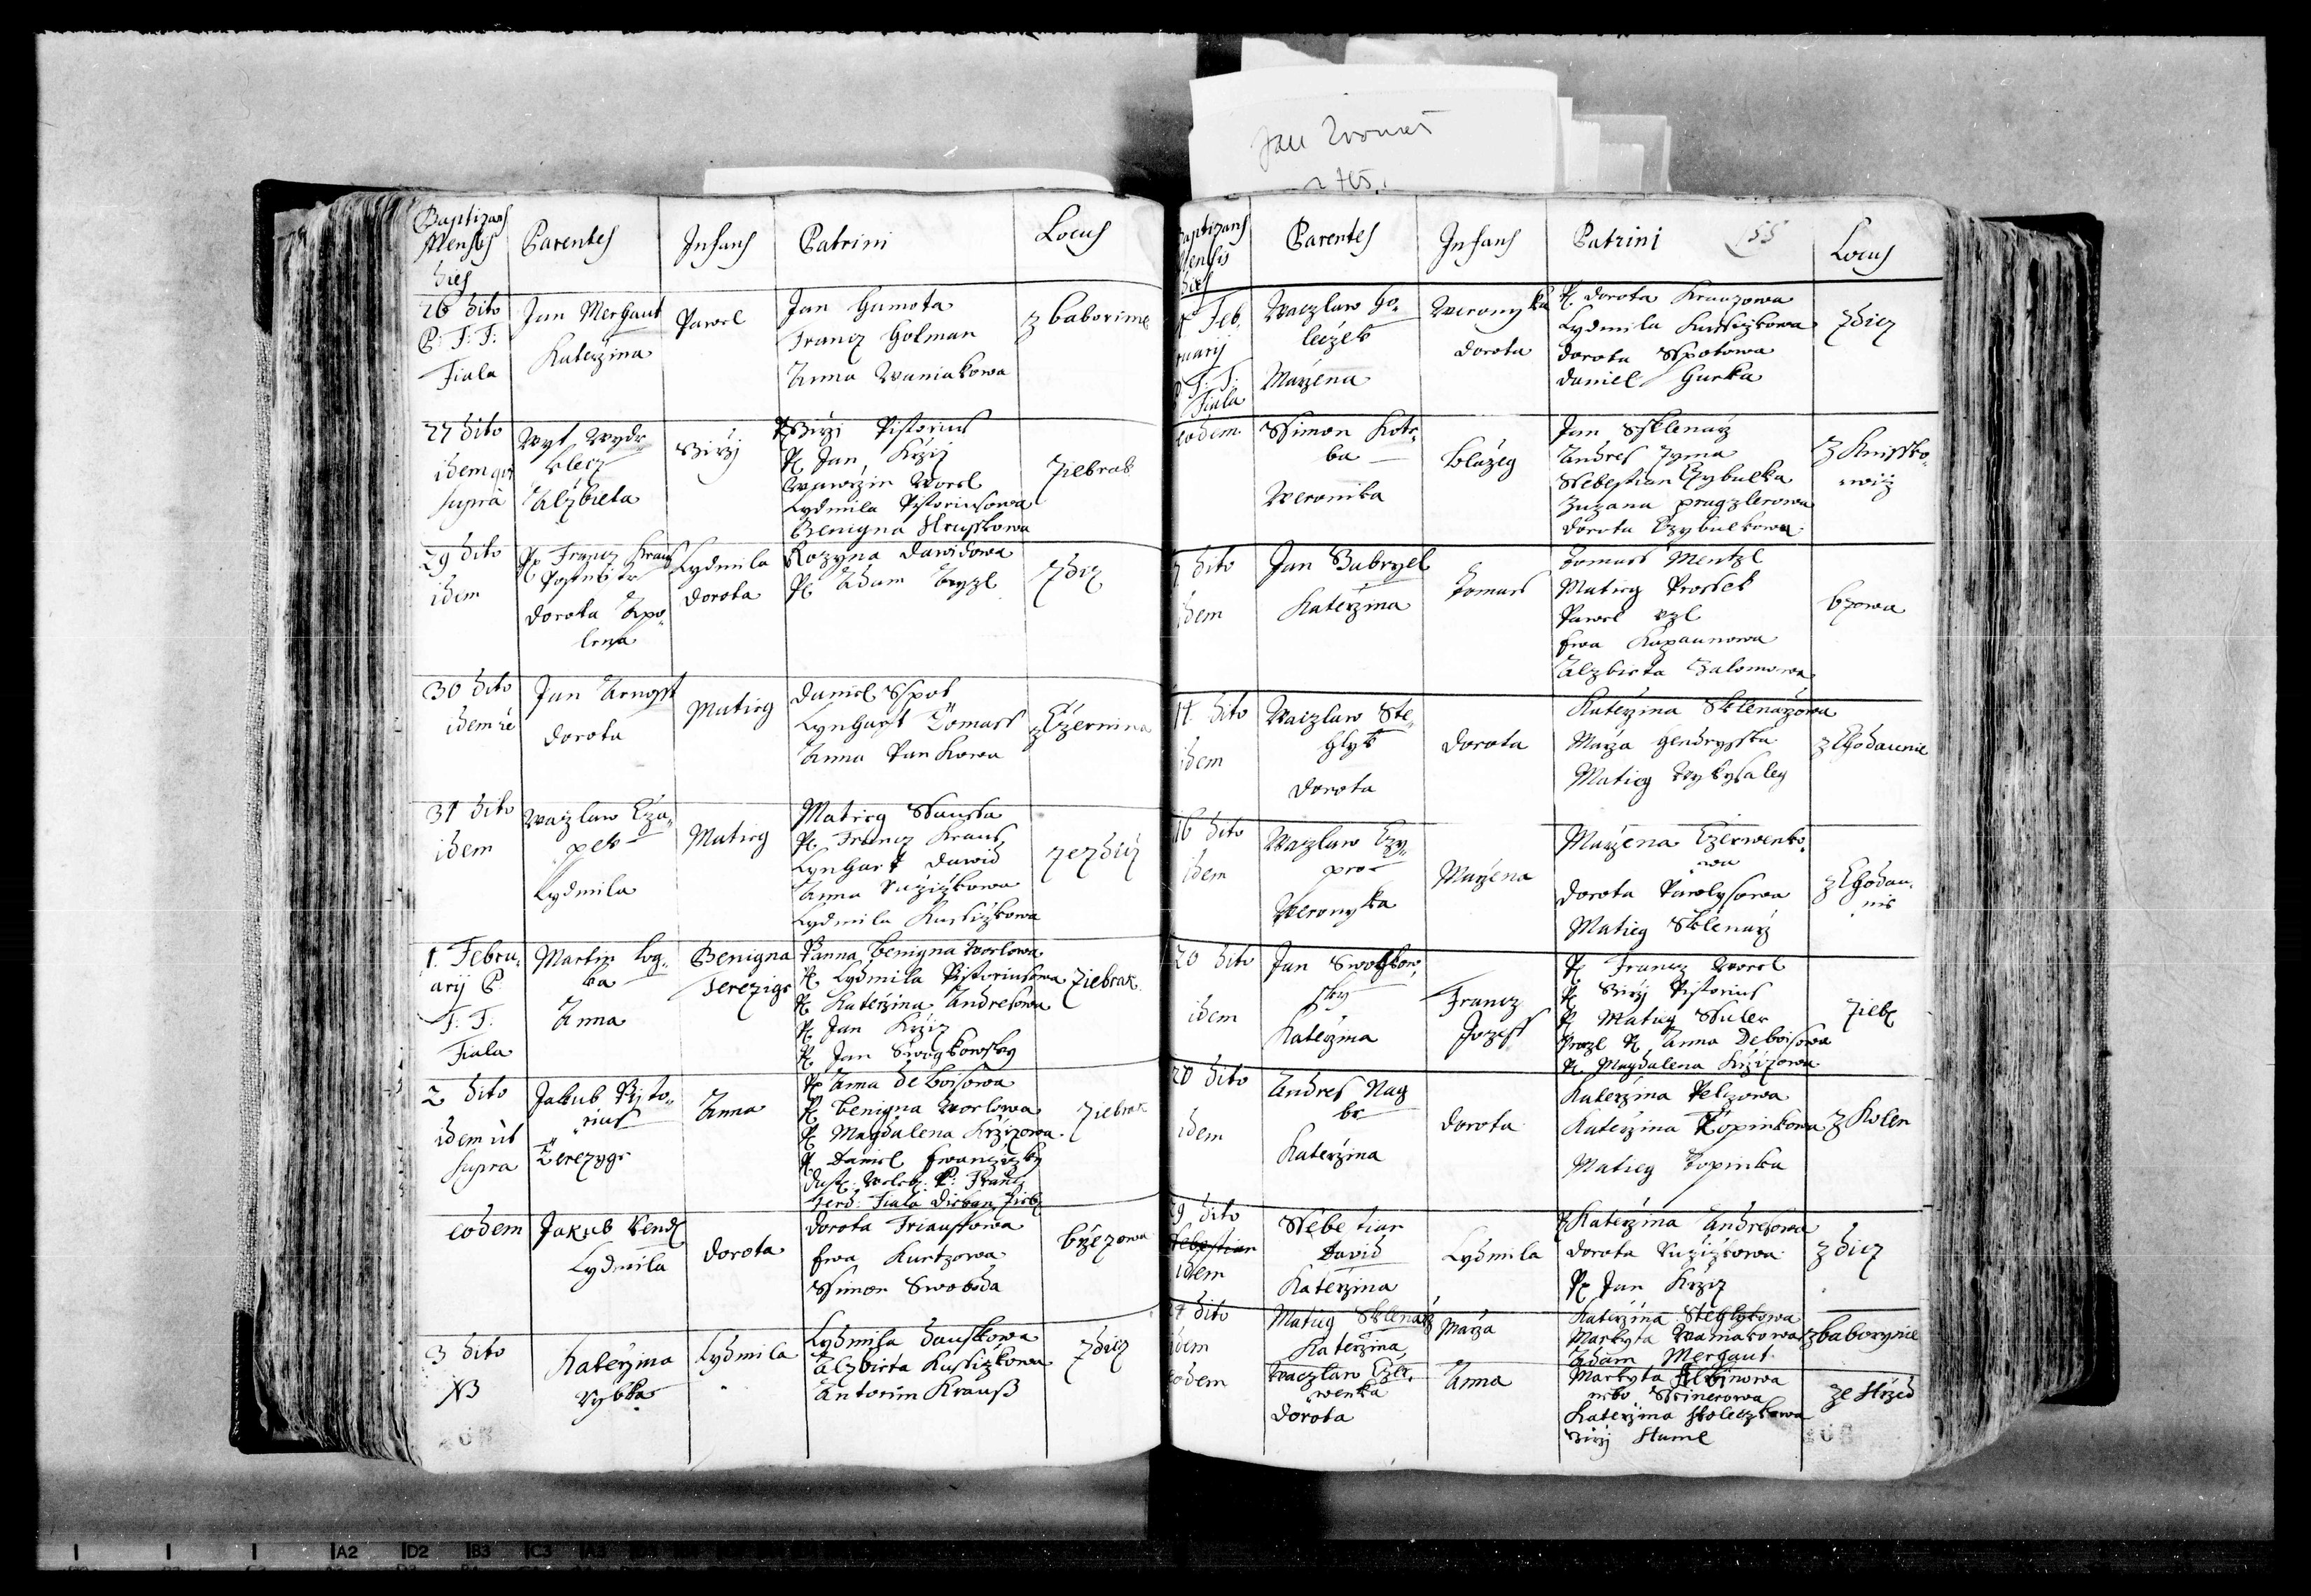 Baptizans
Mensis
dies
Parentes
Infans
Patrini
Locus
26 dito
P: F: F:
Fiala
Jan Merhaut
Katerżina
Pawel
Jan Humota
Francz Holman
Anna Waniakowa
z baborině
27 dito
idem qui
supra
Wyt Wydr
klecz
Alżbieta
Birżj
P. Birżi Pistorius
P. Jan Krżiż
Wawrzin Worel
Lydmila Pistoriusowa
Benigna Hrusskowa
Ziebrak
29 dito
idem
P. Francz Kraus
Dorota Apo„
lena
Lydmila
Dorota
Rozyna Dawidowa
P. Adam
Zdicz
30 dito
idem
Jan Arnosst
Dorota
Matieg
Daniel Sspot
Lynhart Tomass
Anna Pankowa
z Czernina
31 dito
idem
Waczlaw Cza„
pek
Lydmila
Matieg
Matieg Slauska
P. Francz Kraus
Lynhart Dawid
Anna Rużiżkowa
Lydmila Kussiżkowa
ze Zdicz
1. Febru„
arij P
F: F:
Fiala
Martin Log„
ka
Anna
Benigna
Terezige
Panna Benigna Worlowa
P. Lydmila Pistoriusowa
P. Katerżina Andresowa
P. Jan Krżiż
P. Jan Swogkowsky
Ziebrak
2 dito
idem ut
supra
Jakub Pisto„
rius
Terezyge
Anna
P. Anna deboisowa
P. Benigna Worlowa
P. Magdalena Krżiżowa
P. Daniel Iwanczizky
Ferd: Fiala Diekan Zieb
Ziebrak
eodem
Jakub Bend
Lydmila
Dorota
Dorota Triauskowa
Ewa Kurtzowa
Ssimon Swoboda
bżezowa
3 dito
NB
Katerżina
Rybka
Lydmila
Lydmila Dauskowa
Alżbieta Kussiżkowa
Antonin Krauß
Zdicz
Jan
765.
Baptizans
Mensis
dies
Parentes
Infans
Patrini
155
Locus
Feb„
ruarij
P. F: F:
Fiala
Waczlaw Ho„
leczek
Marżena
Weronyka
Dorota
P. Dorota Krauzowa
Lydmila Kussiżkowa
Dorota Sspotowa
Daniel Hurka
Zdicz
eodem
Ssimon Kotr„
ba
Weronika
blażeg
Jan Sklenarż
Andres Zyma
Ssebestian Czybulka
Zuzana pragzlerowa
Dorota Czybulkowa
z Knissko„
wiz
7 dito
idem
Jan Gabryel
Katerżina
Tomass
Tomass Mentzl
Matieg Prossek
Pawel
Ewa Kapaunowa
Alzbieta Salomowa
bzowa
11 dito
idem
Waczlaw Ste„
hlyk
Dorota
Dorota
Katerżina Sklenarżowa
Marża Gendrysska
Matieg Wykysaleg
z Chodaunie
16 dito
idem
Waczlaw Czy„
pro
Weronyka
Marżena
Marżena Czerwenko„
wa
Dorota Pawlysowa
Matieg Sklenarż
z Chodau„
nie
20 dito
idem
Jan Swogkow„
sky
Katerżina
Francz
Jozeff
P. Francz Worel
P. Birżj Pistorius
P. Matieg Ssuler
P. Anna Deboisowa
P. Magdalena Krżiżowa
Zieb
20 dito
idem
Andres Nag
br
Katerżina
Dorota
Katerżina Pelczowa
Katerżina Topinkowa
Matieg Topinka
z Kolen
29 dito
Sebestian
idem
Ssebestian
David
Katerżina
Lydmila
P. Katerżina Andresowa
Dorota Rużiżkowa
P. Jan Krżiż
Zdicz
dito
idem
Matieg Sklenarż
Katerżina
Marża
Katerżina Stehlykowa
Markyta Waniakowa
Adam Merhaut
z baborynie
eodem
Waczlaw Czer„
wenka
Dorota
Anna
Markyta Albinowa
nebo Steinerowa
Katerżina Holeczkowa
Birżj Huml
ze Strżed